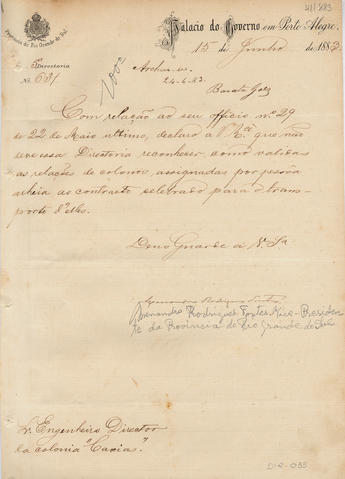 411883
Provincia do Rio Grande do Sul
Palacio do Governo em Porto Alegre,
15 de Junho de 1883.
Directoria
N. 681
Archive-se
24-6-83.
Barata Góes
Com relação ao seu officio n.º 29
de 22 de Maio ultimo, declaro a V.Sª que não
deve essa Directoria reconhecer como validas
as relações de colonos, assignadas por pessoa
alheia ao contracto celebrado para o trans-
porte d'elles.
Deus Guarde a V. Sª
Menandro Rodrigues Fontes
Menandro Rodrigues Fontes Vice-Presiden
te da Provincia do Rio Grande do Sul
Sr. Engenheiro Director
da colonia "Caxias."
DIR-035